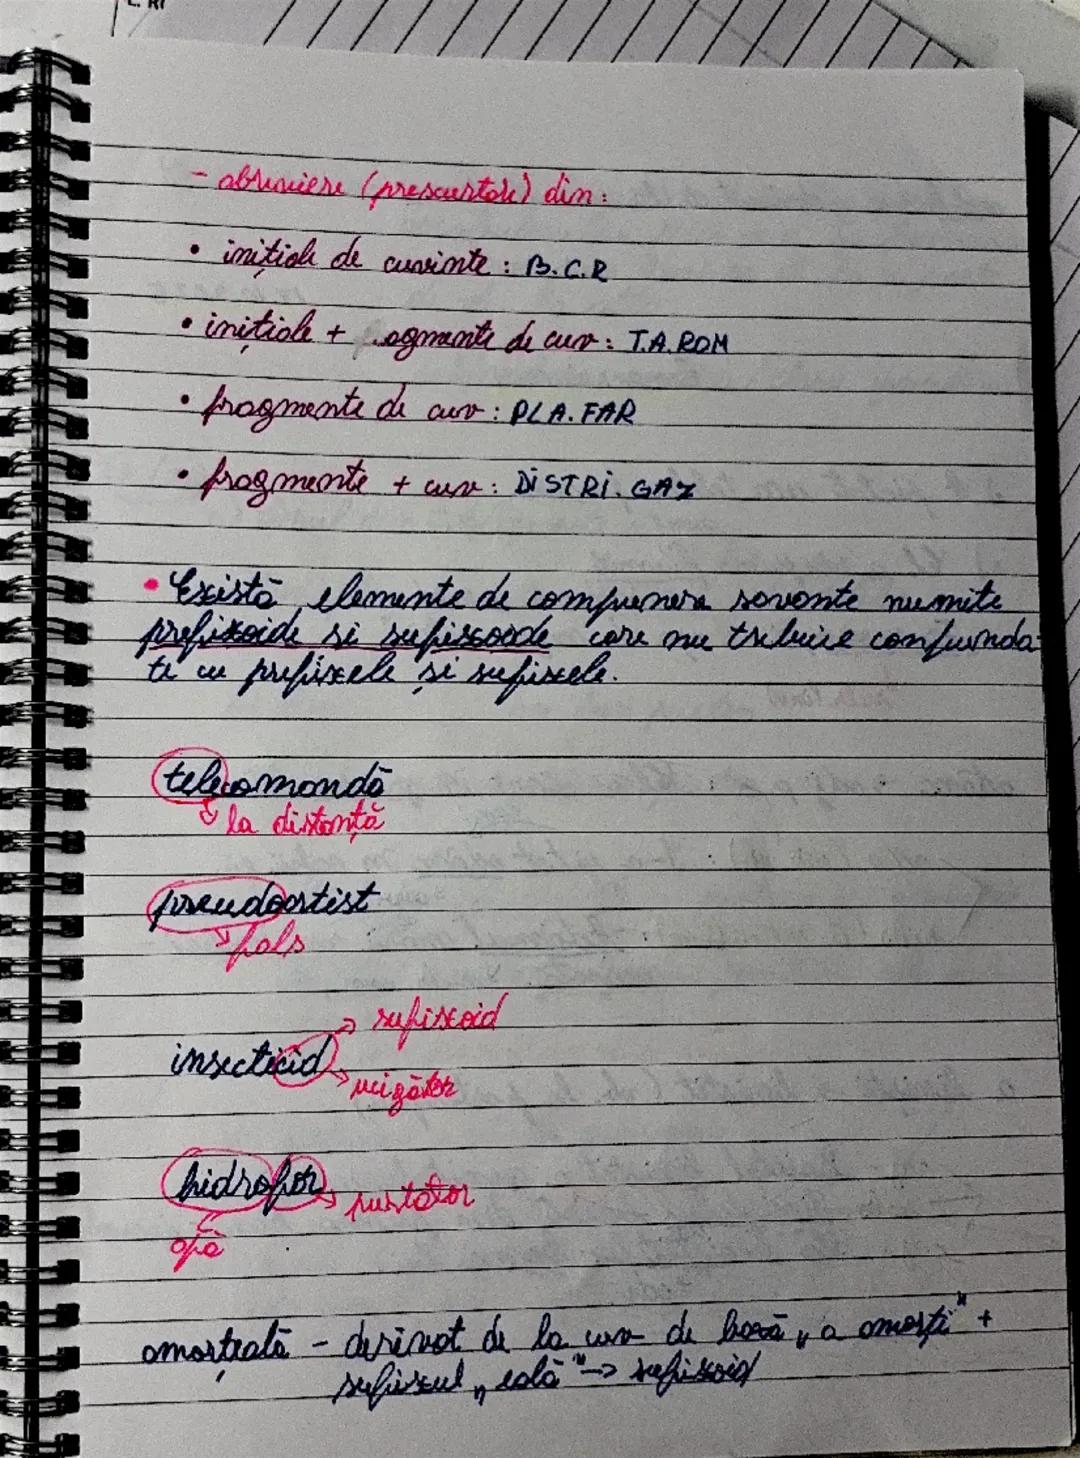 - abreviere (prescurtare) din:
• inițiale de cuvinte : B.C.R
• inițiale + fragmente de cuv : T.A.ROM
• fragmente de cuv : PLA.FAR
• fragmente + cuv : DISTRI.GAZ
• Există elemente de compunere savante numite
prefixoide si sufixoide care nu trebuie confunda-
te cu prefixele și sufixele.
telecomandă
la distanță
pseudoartist
fals
sufixoid
insecticid
ucigător
hidrofor
purtător
apă
amorțeală - derivat de la cuv de bază „a amorți" +
sufixul „eală" -> sufixoid